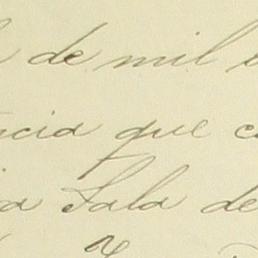 de mil
cia que
a Sala de